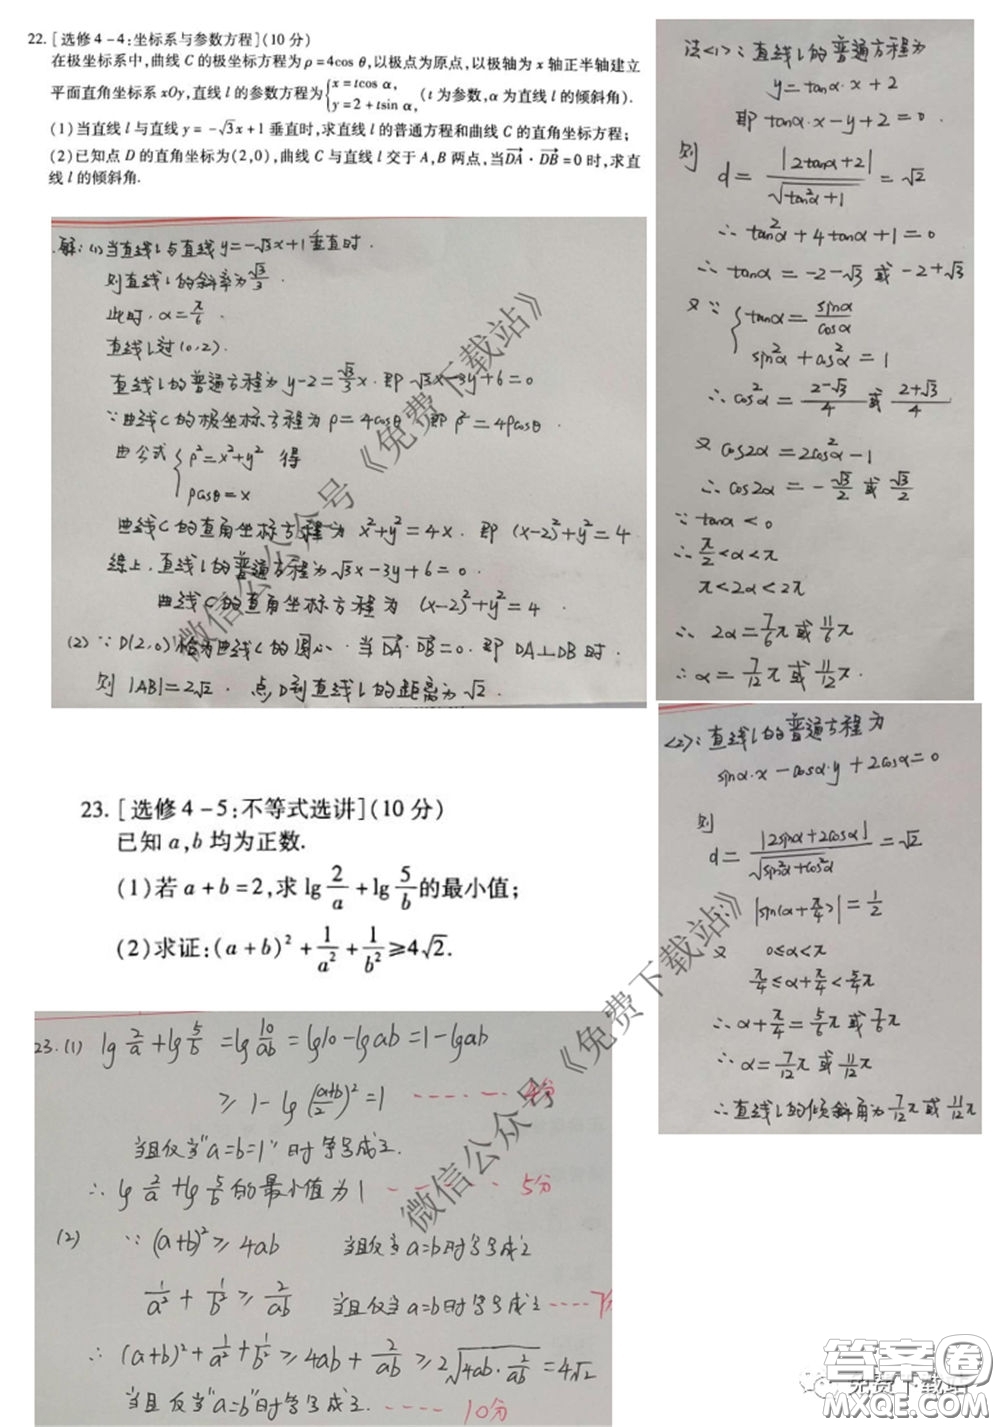 22.[选修4-4:坐标系与参数方程](10分)
在极坐标系中,曲线C的极坐标方程为ρ=4cos θ,以极点为原点,以极轴为x轴正半轴建立
平面直角坐标系xOy,直线l的参数方程为{x=tcos α, y=2+tsin α,(t为参数,α为直线l的倾斜角).
(1)当直线l与直线y=-√3x+1垂直时,求直线l的普通方程和曲线C的直角坐标方程;
(2)已知点D的直角坐标为(2,0),曲线C与直线l交于A,B两点,当DA→·DB→=0时,求直
线l的倾斜角.
解:(1)当直线l与直线y=-√3x+1垂直时.
则直线l的斜率为√3/3.
此时,α=π/6.
直线l过(0,2).
直线l的普通方程为y-2=√3/3x.即√3x-3y+6=0
∵曲线C的极坐标方程为ρ=4cosθ,即ρ²=4ρcosθ.
由公式{ρ²=x²+y² ρcosθ=x 得
曲线C的直角坐标方程为x²+y²=4x.即(x-2)²+y²=4.
综上,直线l的普通方程为√3x-3y+6=0.
曲线C的直角坐标方程为(x-2)²+y²=4.
(2)∵D(2,0)恰为曲线C的圆心.当DA→·DB→=0.即DA⊥DB时.
则|AB|=2√2.点D到直线l的距离为√2.
法<1>:直线l的普通方程为
y=tanα·x+2
即tanα·x-y+2=0.
则
d=|2tanα+2|/√(tan²α+1)=√2
∴tan²α+4tanα+1=0
∴tanα=-2-√3或-2+√3
又∵{tanα=sinα/cosα
sin²α+cos²α=1
∴cos²α=(2-√3)/4或(2+√3)/4
又cos2α=2cos²α-1
∴cos2α=-√3/2或√3/2
∵tanα<0
∴π/2<α<π
π<2α<2π
∴2α=7/6π或11/6π
∴α=7/12π或11/12π.
<2>:直线l的普通方程为
sinα·x-cosα·y+2cosα=0
则
d=|2sinα+2cosα|/√(sin²α+cos²α)=√2
∴|sin(α+π/4)|=1/2
又 0≤α<π
π/4≤α+π/4<5/4π
∴α+π/4=5/6π或7/6π
∴α=7/12π或11/12π
∴直线l的倾斜角为7/12π或11/12π
23.[选修4-5:不等式选讲](10分)
已知a,b均为正数.
(1)若a+b=2,求lg 2/a+lg 5/b的最小值;
(2)求证:(a+b)²+1/a²+1/b²≥4√2.
23.(1) lg 2/a+lg 5/b=lg 10/ab=lg10-lgab=1-lgab
≥1-lg((a+b)/2)²=1 ------4分
当且仅当"a=b=1"时等号成立.
∴lg 2/a+lg 5/b的最小值为1 ------5分
(2) ∵(a+b)²≥4ab 当且仅当a=b时等号成立
1/a²+1/b²≥2/ab 当且仅当a=b时等号成立----7分
∴(a+b)²+1/a²+1/b²≥4ab+2/ab≥2√(4ab·2/ab)=4√2
当且仅当"a=b"时等号成立.----10分
微信公众号《免费下载站》
微信公众号《免费下载站》
免费下载站
答案圈
MXQE.COM